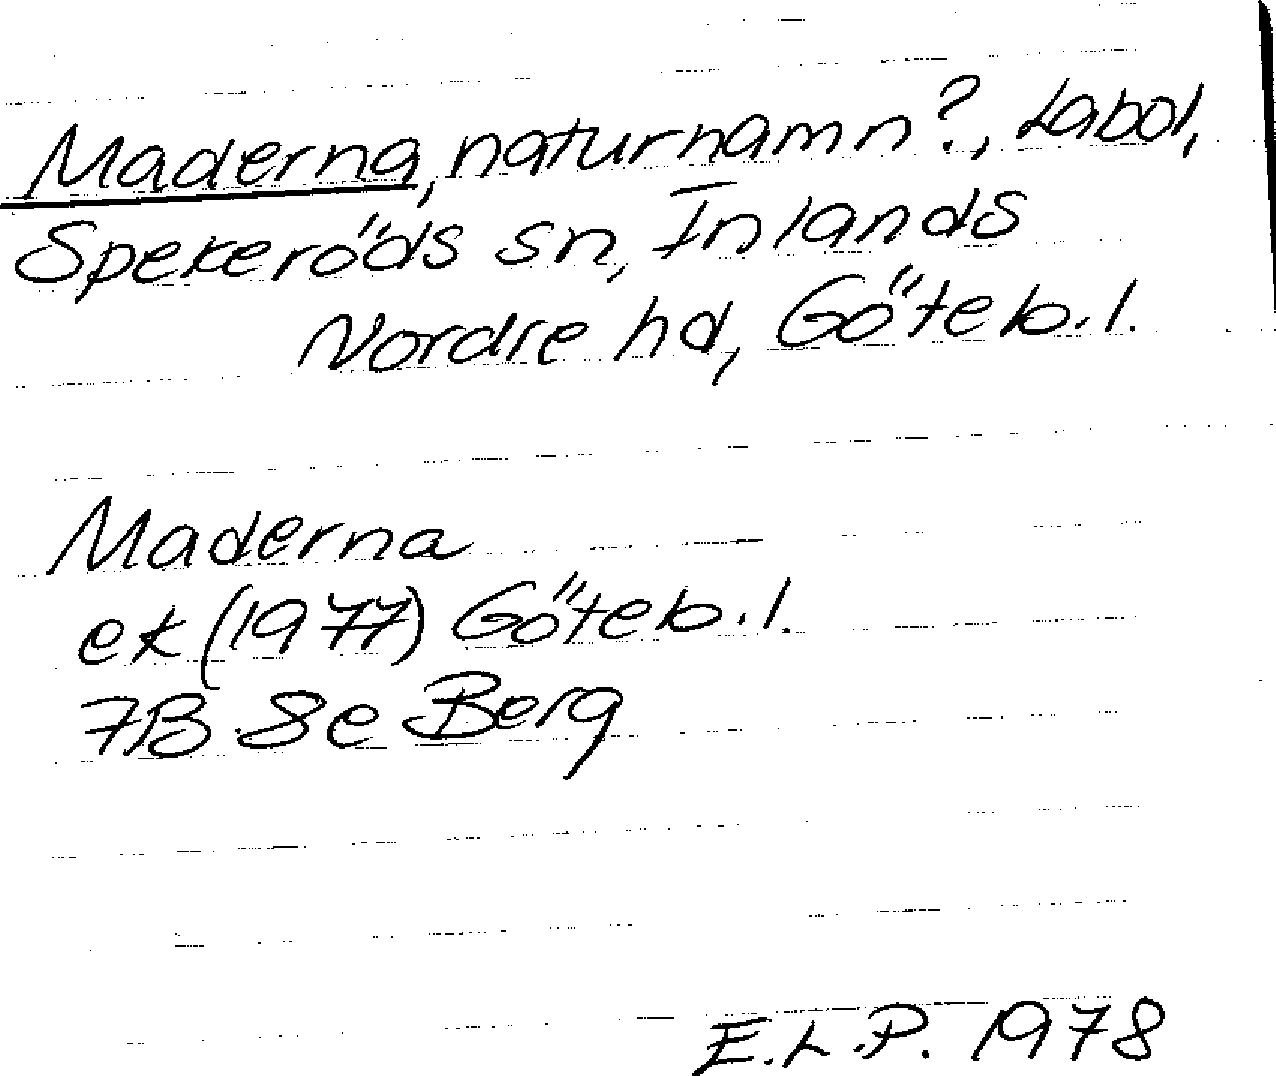 Maderna, naturnamn?, Labol,
Spekeröds sn, Inlands
Nordre hd, Göteb.l.
Maderna
ek (1977) Göteb.l.
7B 8e Berg
E.L.P. 1978